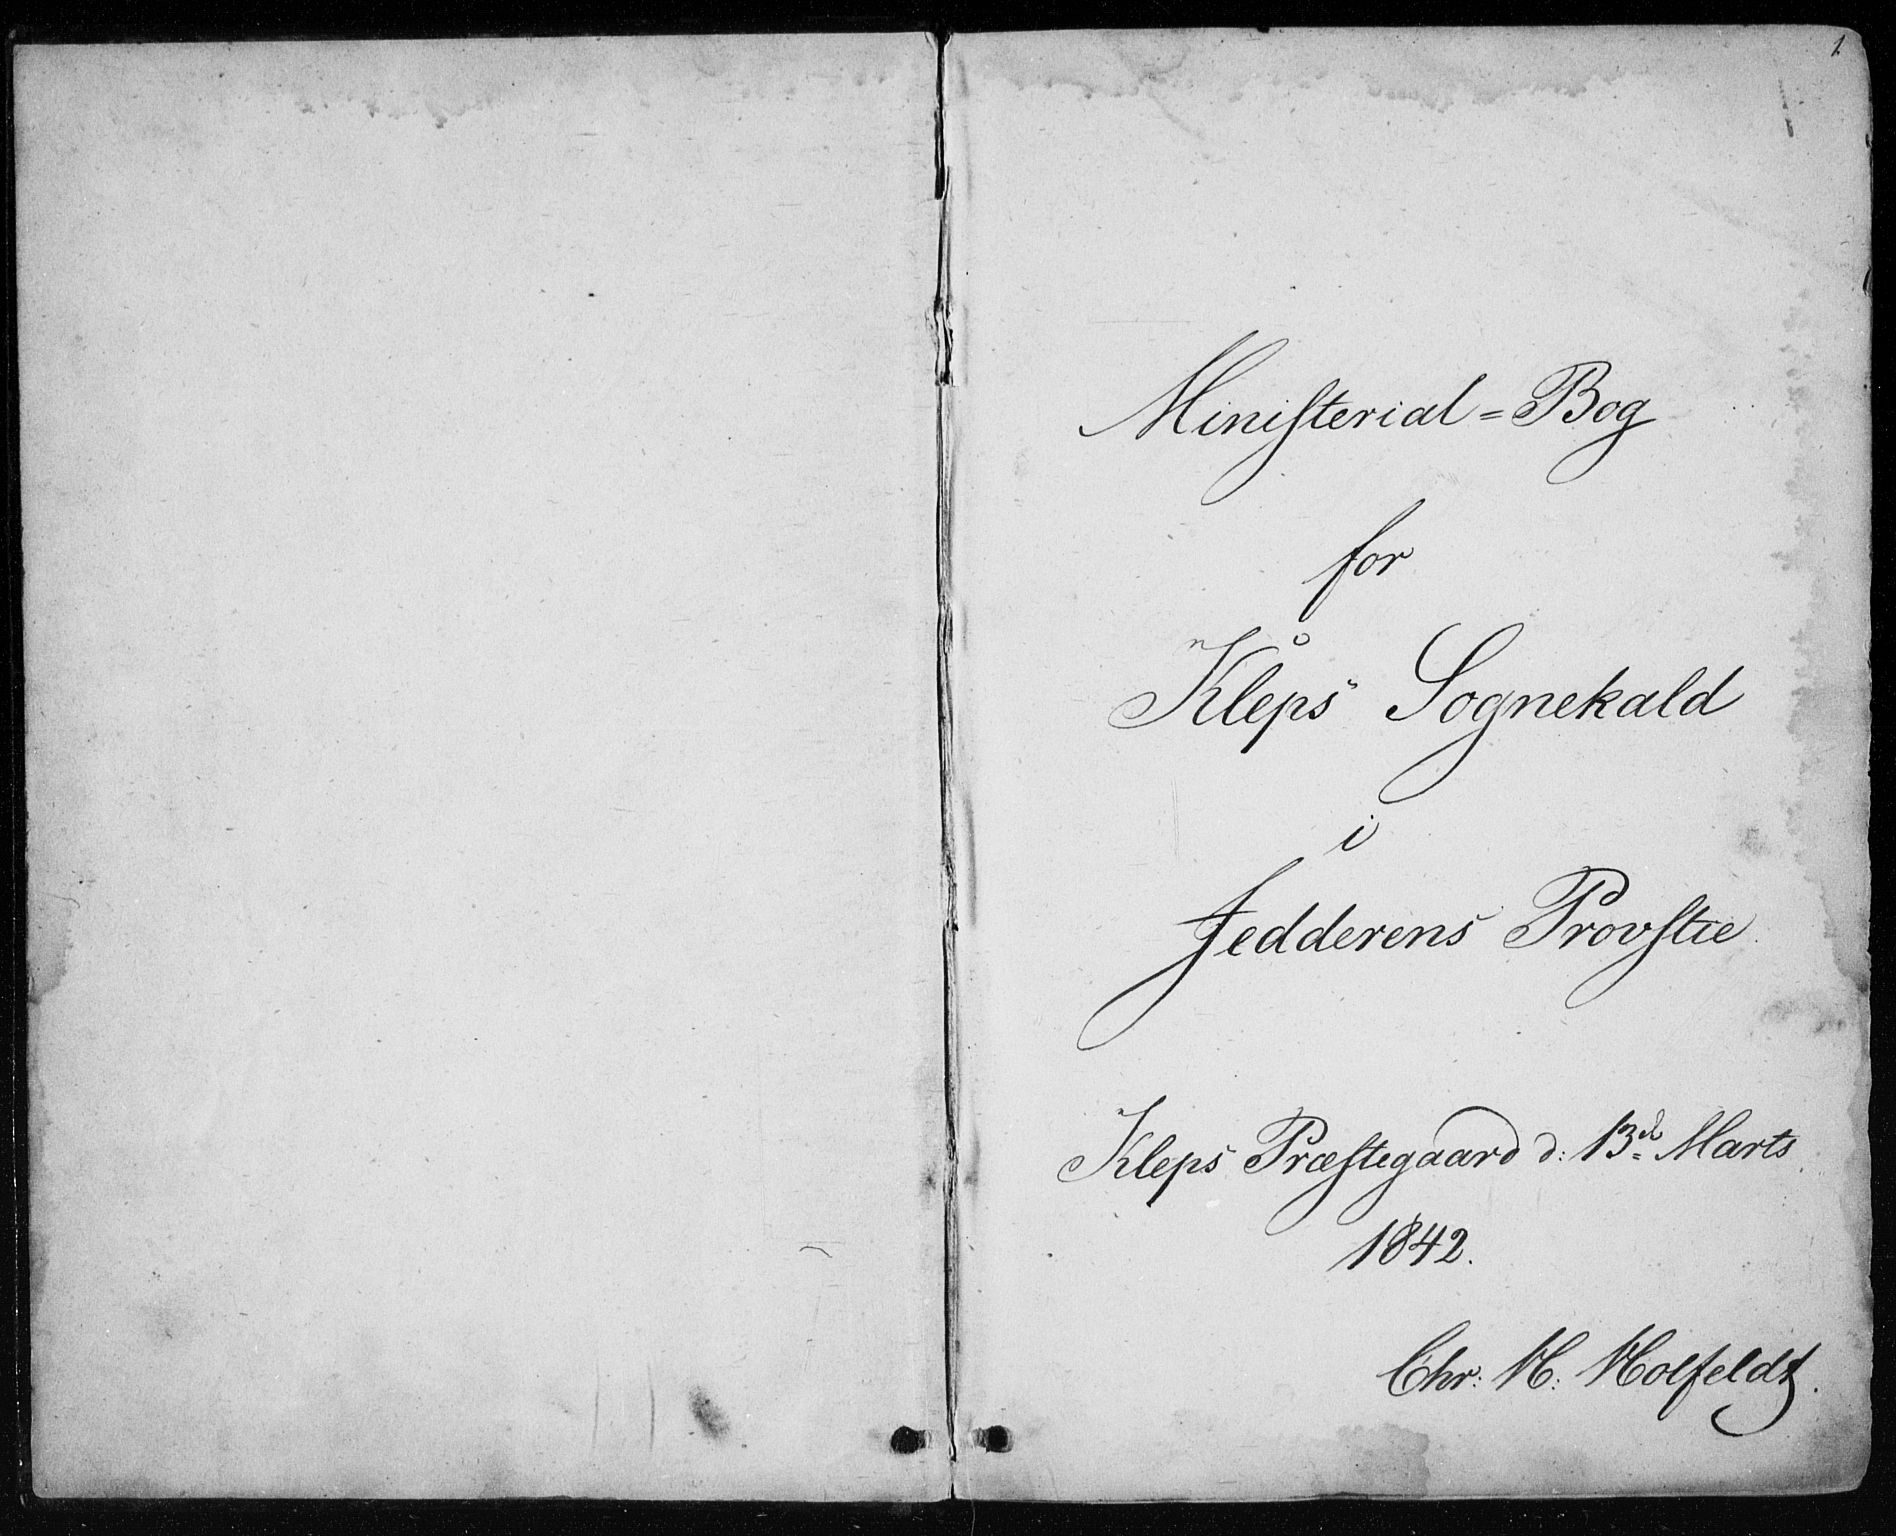 1.
Ministerial=Bog
for
Kleps Sognekald
i
Jedderens Provstie.
Kleps Præstegaard d: 13de Marts
1842.
Chr: M: Molfeldt.